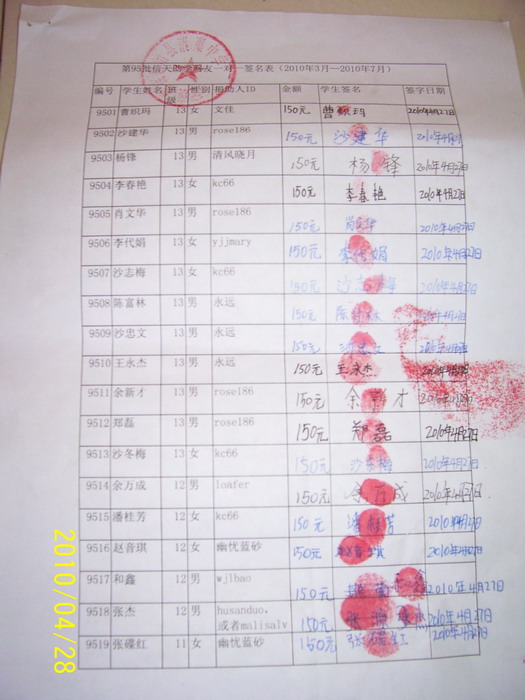 第95批信天助学网友一对一签名表（2010年3月—2010年7月）
编号 学生姓名 班级 性别 捐助人ID 金额 学生签名 签字日期
9501 曹织玛 13 女 文佳 150元 曹织玛 2010年4月27日
9502 沙建华 13 男 rose186 150元 沙建华 2010年4月27日
9503 杨锋 13 男 清风晓月 150元 杨锋 2010年4月27日
9504 李春艳 13 女 kc66 150元 李春艳 2010年4月27日
9505 肖文华 13 男 rose186 150元 肖文华 2010年4月27日
9506 李代娟 13 女 yjjmary 150元 李代娟 2010年4月27日
9507 沙志梅 13 女 kc66 150元 沙志梅 2010年4月27日
9508 陈富林 13 男 永远 150元 陈富林 2010年4月27日
9509 沙忠文 13 男 永远 150元 沙忠文 2010年4月27日
9510 王永杰 13 男 永远 150元 王永杰 2010年4月27日
9511 余新才 13 男 rose186 150元 余新才 2010年4月27日
9512 郑磊 13 男 rose186 150元 郑磊 2010年4月27日
9513 沙冬梅 13 女 kc66 150元 沙冬梅 2010年4月27日
9514 余万成 12 男 loafer 150元 余万成 2010年4月27日
9515 潘桂芳 12 女 kc66 150元 潘桂芳 2010年4月27日
9516 赵音琪 12 女 幽忧蓝砂 150元 赵音琪 2010年4月27日
9517 和鑫 12 男 wjlbao 150元 鑫 2010年4月27日
9518 张杰 12 男 husanduo,或者malisalv 150元 张杰 2010年4月27日
9519 张碟红 11 女 幽忧蓝砂 150元 张碟红 2010年4月27日
2010/04/28